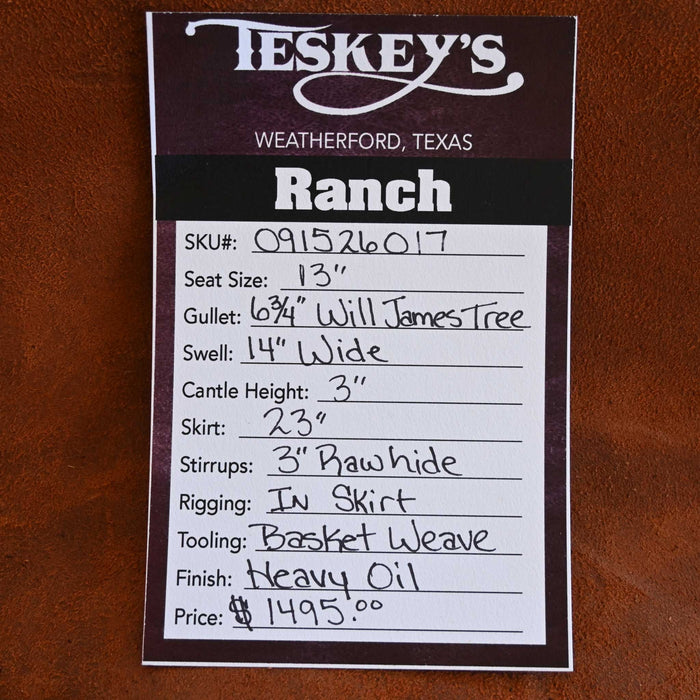 TESKEY'S
WEATHERFORD, TEXAS
Ranch
SKU#: 091526017
Seat Size: 13"
Gullet: 6¾" Will James Tree
Swell: 14" Wide
Cantle Height: 3"
Skirt: 23"
Stirrups: 3" Rawhide
Rigging: In Skirt
Tooling: Basket Weave
Finish: Heavy Oil
Price: $1495.00